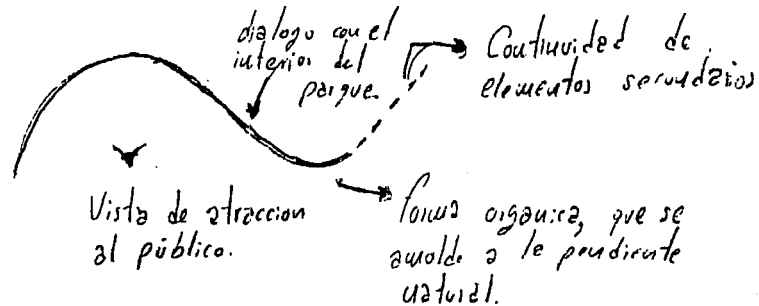 dialogo con el
interior del
parque.
Continuidad de
elementos secundarios
Vista de atraccion
al público.
forma organica, que se
amolde a la pendiente
natural.